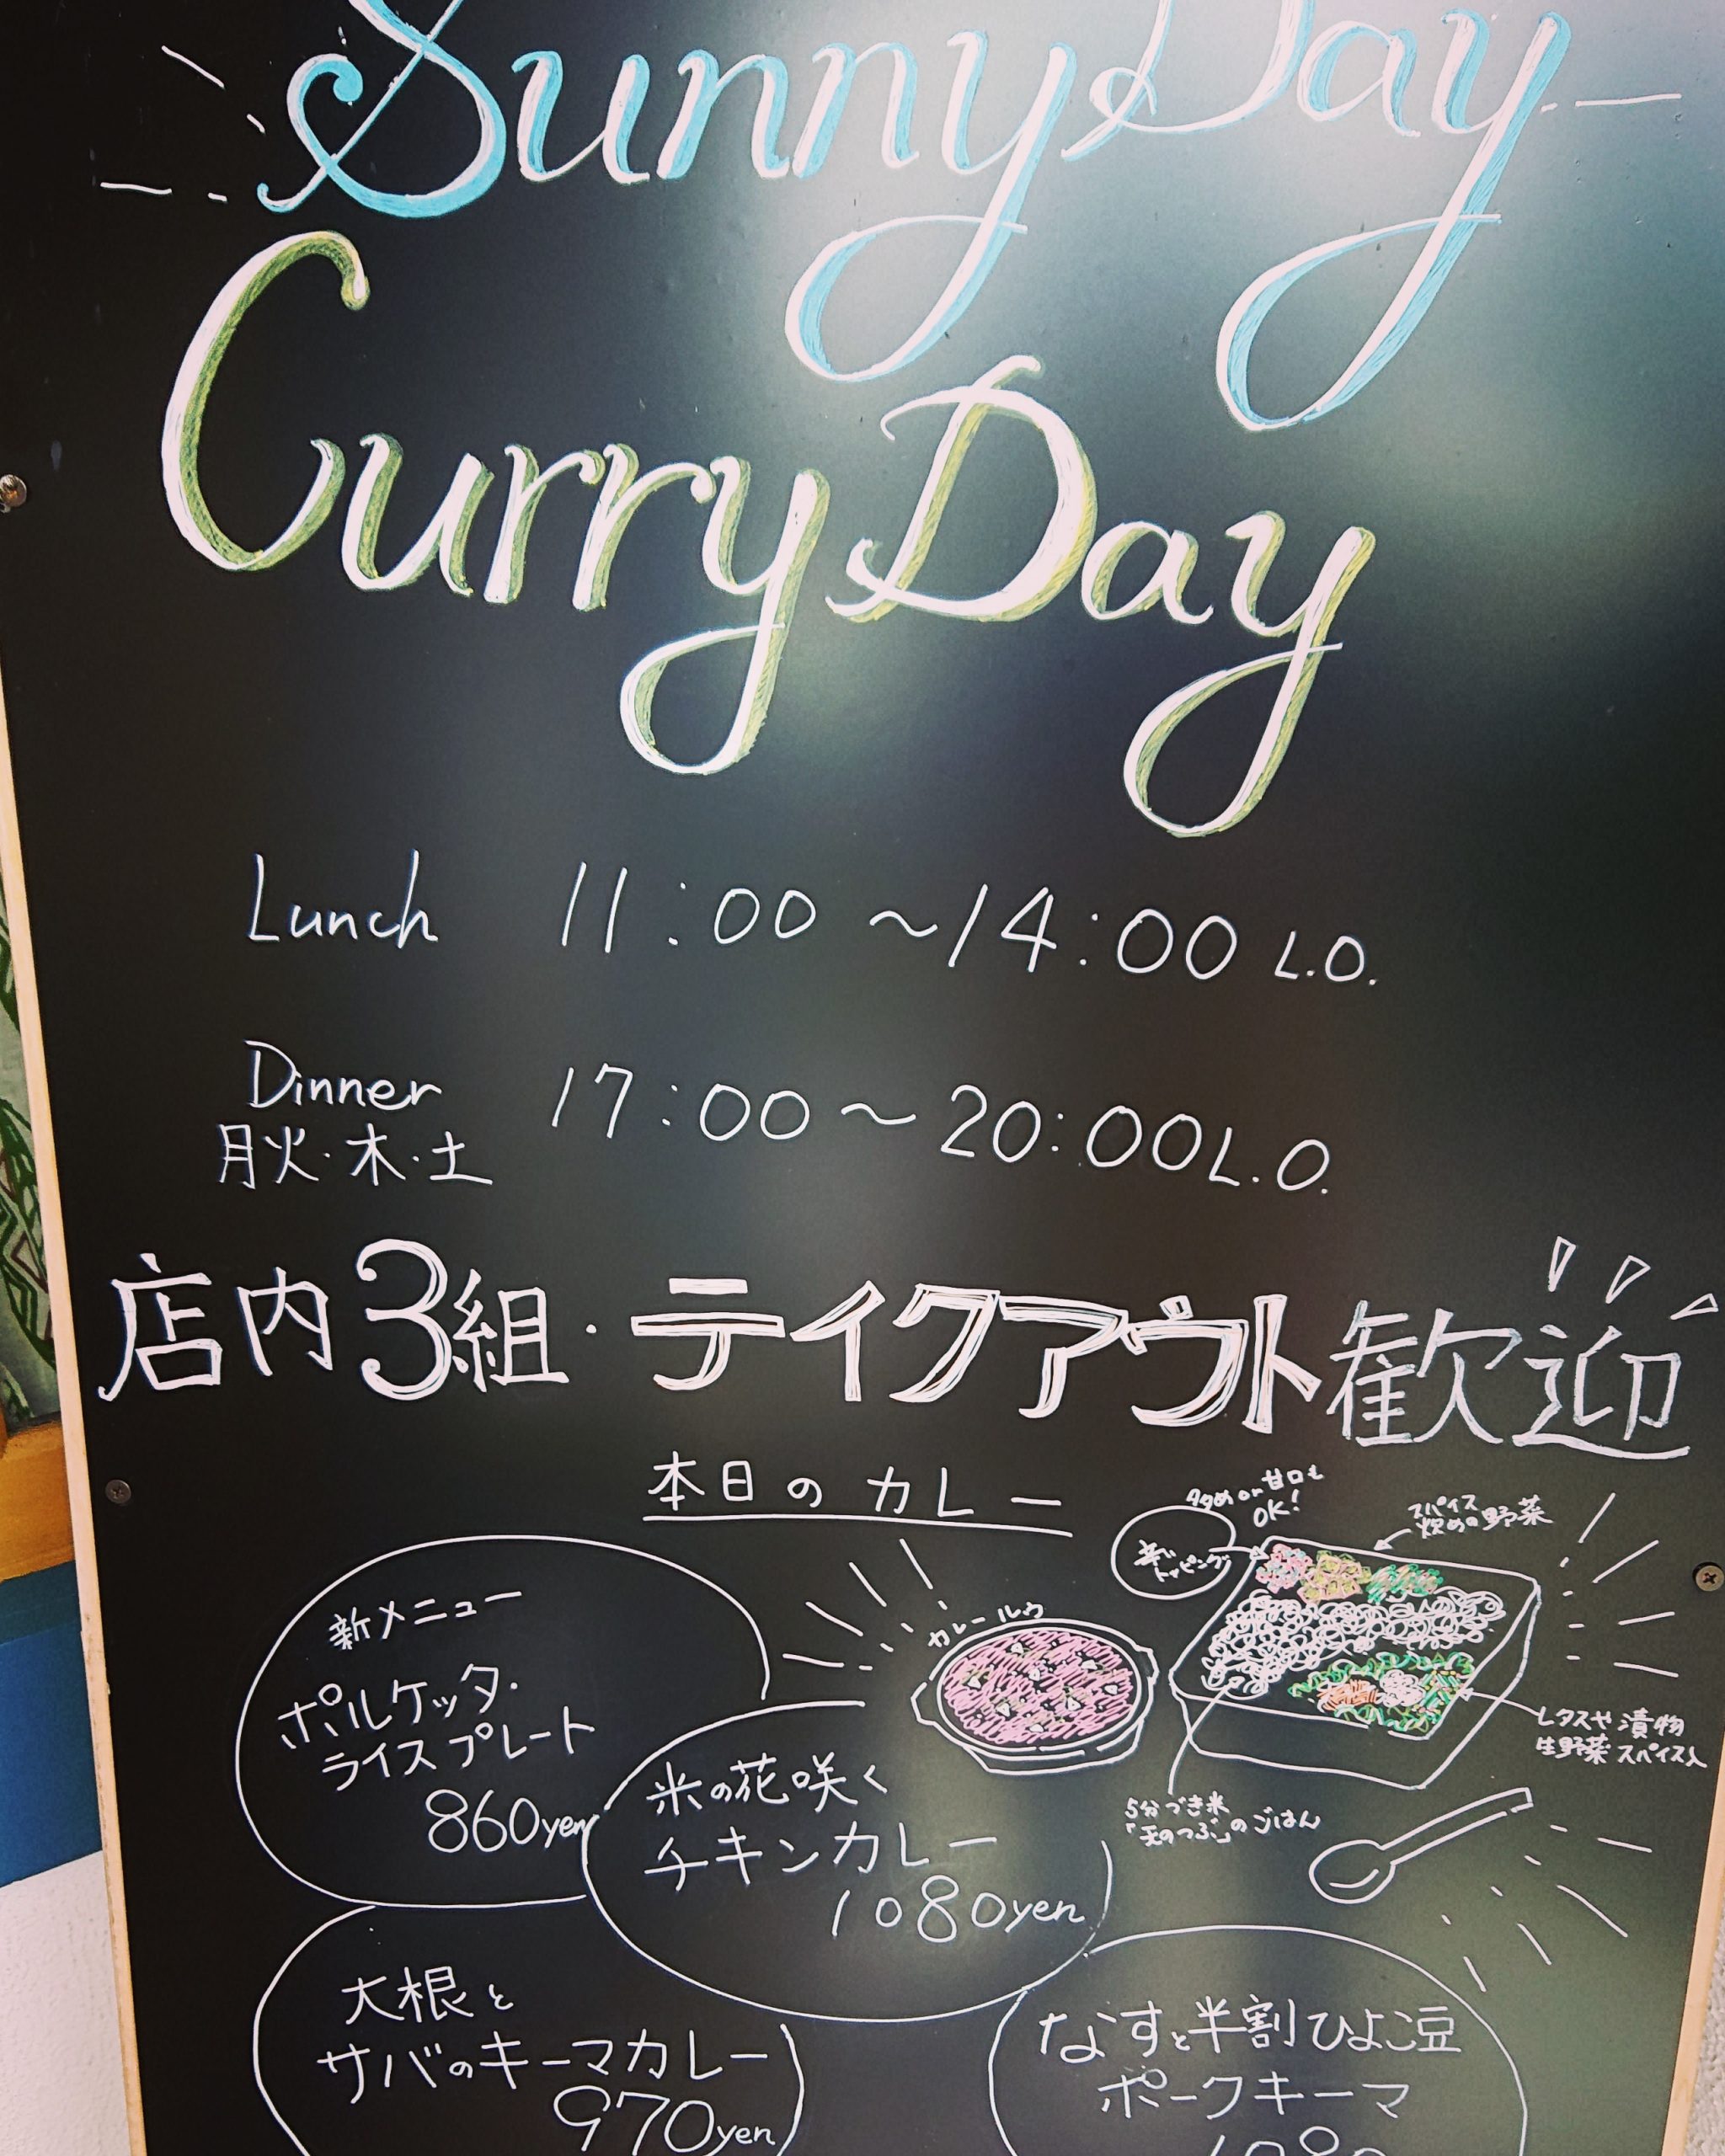 Sunny Day
Curry Day
Lunch 11:00～14:00 L.O.
Dinner 17:00～20:00 L.O.
月火・木・土
店内3組・テイクアウト歓迎
本日のカレー
OK!
スパイス
炒めの野菜
トッピング
カレールウ
レタスや漬物
生野菜 スパイス入
5分づき米
「天のつぶ」のごはん
新メニュー
ポルケッタ・
ライスプレート
860yen
米の花咲く
チキンカレー
1080yen
大根と
サバのキーマカレー
970yen
なすと半割ひよこ豆
ポークキーマ